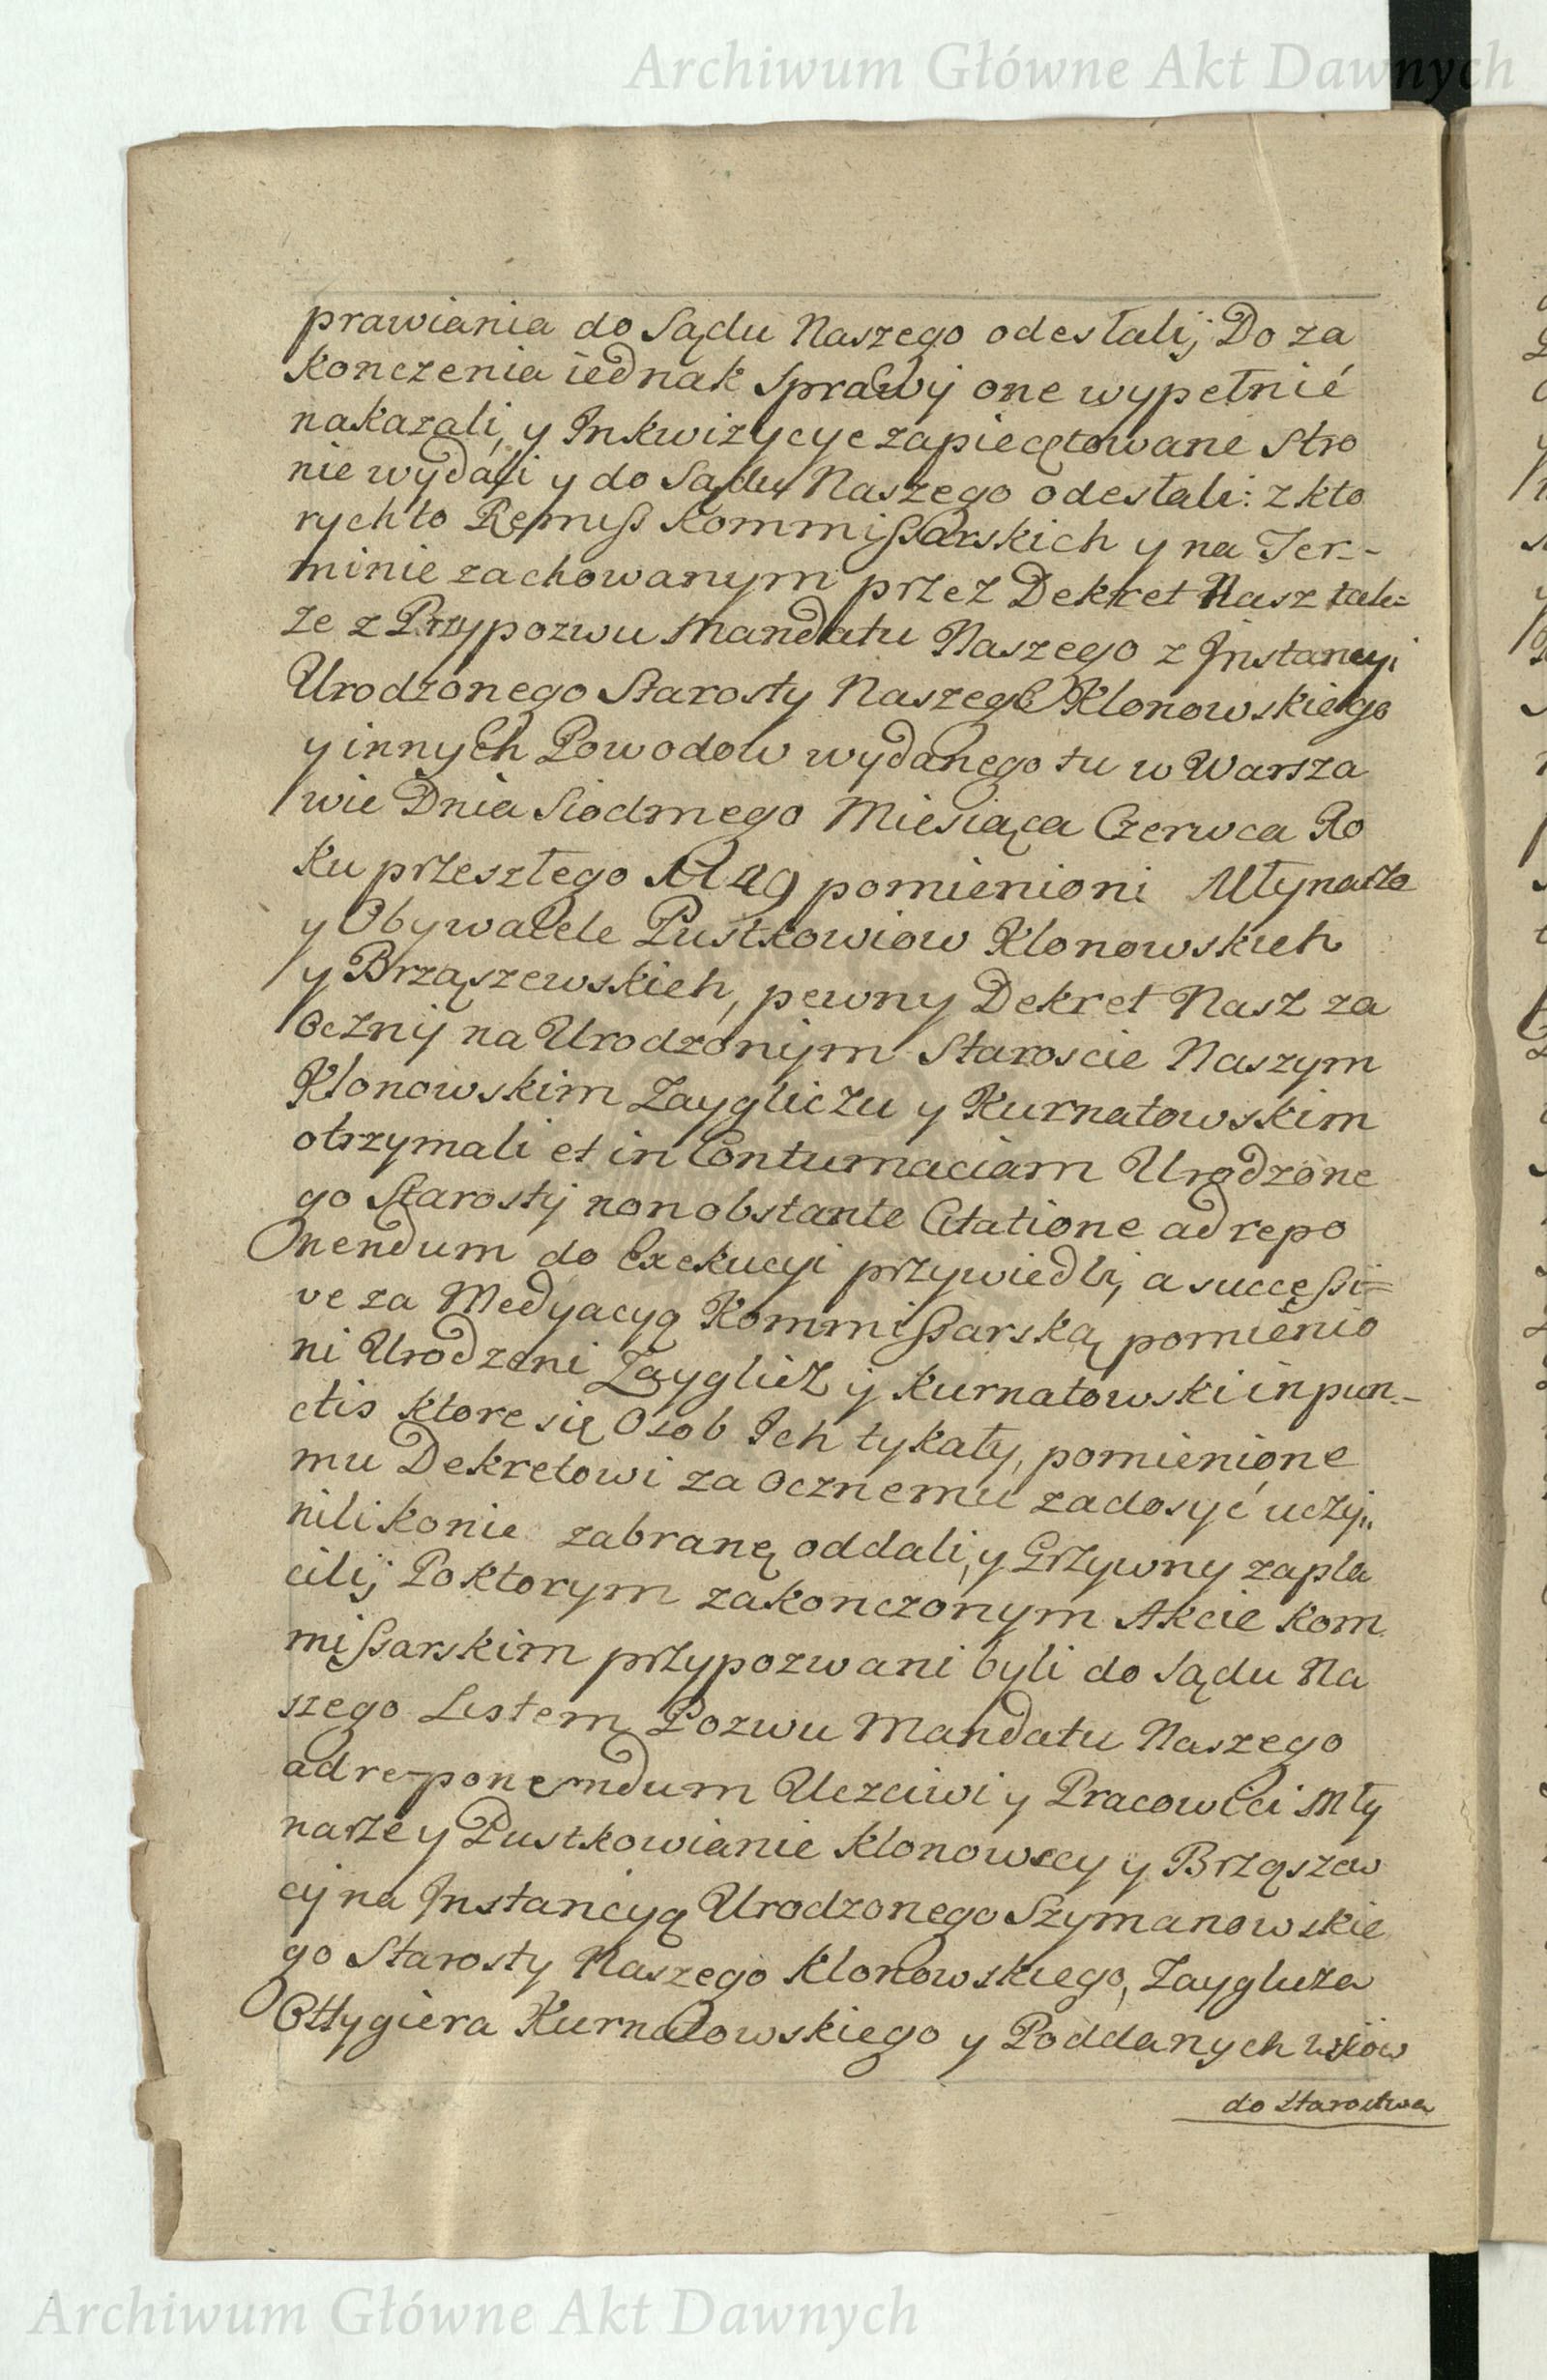 Archiwum Główne Akt Dawnych
prawiania do Sądu Naszego odesłalij Do za
konczenia iednak Sprawij one wypełnić
nakazali, y Inkwizycye zapieczętowane Stro
nie wydali y do Sądu Naszego odesłali: z kto
rych to Remiss Kommissarskich y na Ter-
minie zachowanym przez Dekret Nasz tak-
że z Przypozwu Mandatu Naszego z Instancyi
Urodzonego Starosty Naszego Klonowskiego
y innych Powodow wydanego tu w Warsza
wie Dnia Siodmego Miesiąca Czerwca Ro
ku przeszłego pomienioni Młynarze
y Obywatele Pustkowiow Klonowskich
y Brząszewskich, pewny Dekret Nasz za
ocznij na Urodzonijm Staroscie Naszym
Klonowskim Zaygliczu y Kurnatowskim
otrzymali et in Contumaciam Urodzone
go Starostij non obstante Citatione ad repo
nendum do Exekucyi przywiedli, a successi=
ve za Medyacyą Kommissarską pomienio
ni Urodzeni Zayglicz ij Kurnatowski in pun-
ctis ktore się Osob Ich tykały, pomienione
mu Dekretowi za Ocznemu zadosyć uczij,,
nili konie zabranę oddali, y Grzywny zapła
cilij Po ktorym zakonczonym Akcie Kom
missarskim przypozwani byli do Sądu Na
szego Listem Pozwu Mandatu Naszego
ad reponendum Uczciwi y Pracowici Mły
narze y Pustkowianie Klonowscy y Brząszew
cij na Instancyą Urodzonego Szymanowskie
go Starosty Naszego Klonowskiego, Zayglicza
Ottygiera Kurnatowskiego y Poddanych wsiow
do Starostwa
Archiwum Główne Akt Dawnych